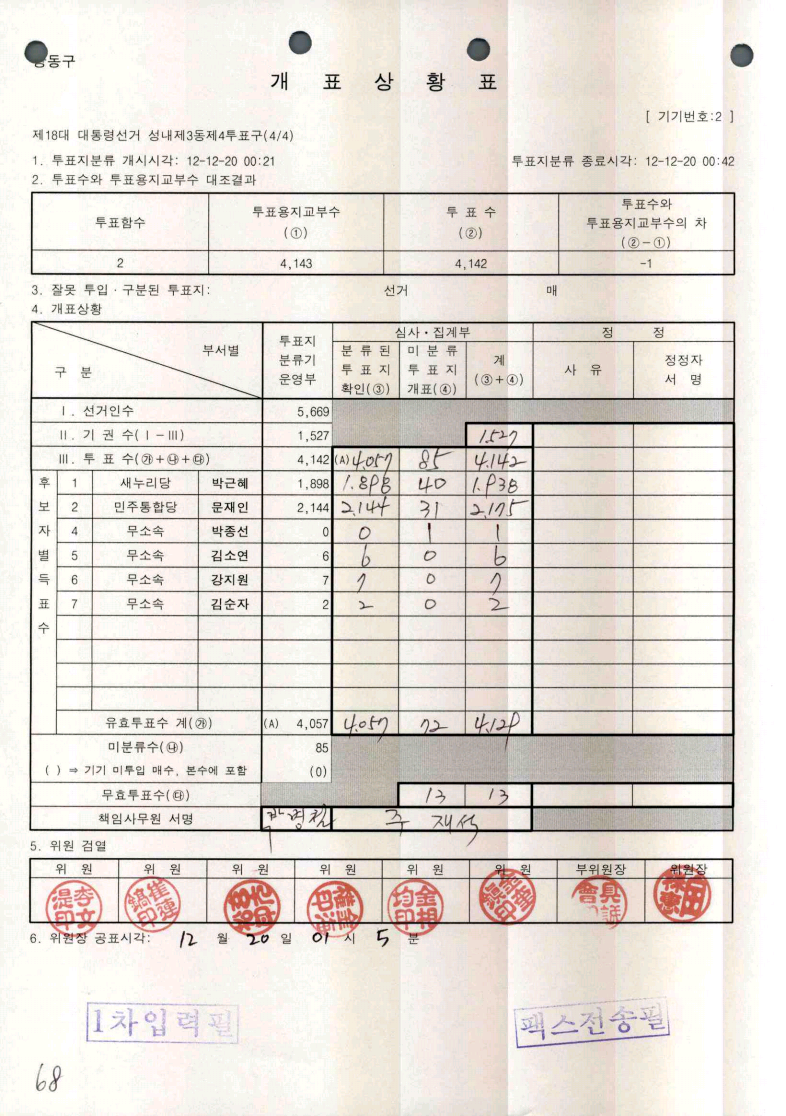 동구
개 표 상 황 표
[ 기기번호:2 ]
제18대 대통령선거 성내제3동제4투표구(4/4)
1. 투표지분류 개시시각: 12-12-20 00:21 투표지분류 종료시각: 12-12-20 00:42
2. 투표수와 투표용지교부수 대조결과
투표함수 투표용지교부수 (①) 투 표 수 (②) 투표수와 투표용지교부수의 차 (②-①)
2 4,143 4,142 -1
3. 잘못 투입ㆍ구분된 투표지: 선거 매
4. 개표상황
부서별 구 분 투표지 분류기 운영부 심사ㆍ집계부 정 정
분 류 된 투 표 지 확인(③) 미 분 류 투 표 지 개표(④) 계 (③+④) 사 유 정정자 서 명
Ⅰ. 선거인수 5,669
Ⅱ. 기 권 수(Ⅰ-Ⅲ) 1,527 1.527
Ⅲ. 투 표 수(㉮+㉯+㉰) 4,142 (A) 4.057 85 4.142
후보자별득표수
1 새누리당 박근혜 1,898 1.898 40 1.938
2 민주통합당 문재인 2,144 2.144 31 2.175
4 무소속 박종선 0 0 1 1
5 무소속 김소연 6 6 0 6
6 무소속 강지원 7 7 0 7
7 무소속 김순자 2 2 0 2
유효투표수 계(㉮) (A) 4,057 4.057 72 4.129
미분류수(㉯) 85
( ) ⇒ 기기 미투입 매수, 본수에 포함 (0)
무효투표수(㉰) 13 13
책임사무원 서명 주 재석
5. 위원 검열
위 원 위 원 위 원 위 원 위 원 위 원 부위원장 위원장
6. 위원장 공표시각: 12 월 20 일 01 시 5 분
1차입력필 팩스전송필
68